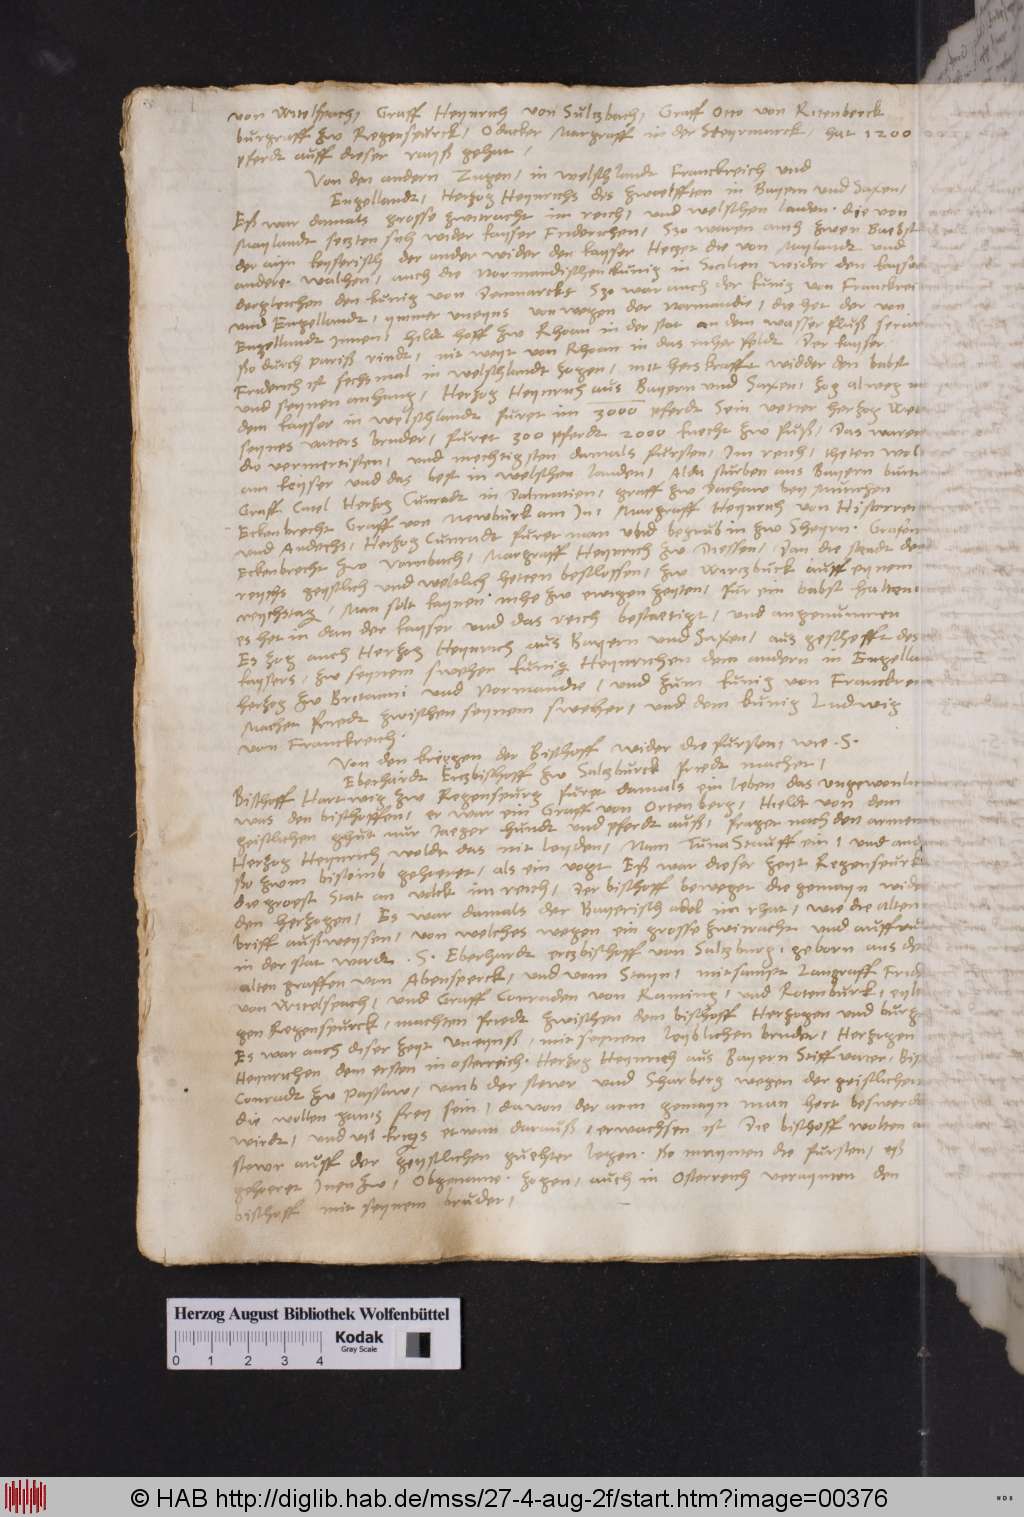 von Witelspach, Graff Heynrich von Sultzbach, Graff Otto von Ritenbeeck
burgraff zw Regenspurck, Odacker Margraff in der Steyrmarck, hat 1200
pferdt auff dieser rayß gehat,
Von den andern Zugen, in welschlandt Franckreich und
Engellandt, Hertzog Heynrichs des zwoelfften in Bayern und Saxen,
Eß war damals grosse zwitracht im reich, und welschen landen. die von
Maylandt setzten sich wider kayser Friderichen, Szo waren auch zwen Baebst
der ayn keyserisch der ander wider den kayser Hetzet die von Maylandt und
andere walhen, auch die Normandischen kunig in Sicilien wider den kayser
dergleichen den kunig von Denmarckt Szo war auch der kunig von Franckrei
und Engellandt, ymmer uneyns von wegen der Normandie, die het der von
Engellandt Innen, hildt hoff zw Rhoan in der stat an dem wasser fluß
so durch pariß rindt, nit weyt von Rhoan in das mher feldt Der kayser
Friderich ist sechs mal in welschlandt zogen, mit hers krafft widder den babst
und seynen anhang, Hertzog Heynrich aus Bayern und Saxen, zog alweg
dem kayser in welschlandt furet im 3000 pferdt Sein vetter hertzog
seynes vaters bruder, furet 300 pferdt 2000 knecht zw fuß, Das waren
die vermeristen, und mechtigsten damals fursten, Im reich, theten
am keyser und das best in welschen landen, Alda sturben aus Bayern
Graff Hertzog Cunradt in Dalmatien, graff zw Dachaw bey Munchen
Eckenbrecht Graff von Newburk am In, Margraff Heynrich von
und Andechs, Hertzog Cunradt furet man und begrub in zw Sheyrn. Grafen
Eckenbrecht zw vormbach, Margraff Heynrich zw Diessen, Dan die
reychs geystlich und weltlich hetten beschlossen, zw Wirtzburck auff eynem
reychstag, Man solt kaynen mhe zw ewigen zeyten, fur ein babst halten
es het in dan der kayser und das reich bestaetigt, und angenummen
Es zog auch Hertzog Heynrich aus Bayern und Saxen, aus geschefft des
kaysers, zw seynem sweher kunig Heynrichen dem andern in Engella
hertzog zw Britanni und Normandie, und zum kunig von Franckrei
Machet friedt zwischen seynem sweher, und dem kunig Ludwig
von Franckreich.
Von den kriegen der Bischoff wider die fursten, wie .S.
Eberhardt Ertzbischoff zw Saltzburck friedt machet,
Bischoff Hartwig zw Regenspurg furet damals ein leben das ungewonlich
was den bischoffen, er war ein Graff von Ortenberg, Hieldt von dem
geistlichen ghut nur Jaeger hundt und pferdt auß, fraget nach den armen
Hertzog Heynrich woldt das nit leyden, Nam Tuna Stauff ein, und
so zwm bistumb gehoeret, als ein vogt Eß war dieser zeyt Regenspurk
die groest Stat an volck im reich, Der bischoff beweget die gemayn wider
den hertzogen, Es war damals der Bayerisch adel im rhat, wie die alten
brieff außweysen, von welches wegen ein grosse zwitracht und auffrur
in der stat wardt .S. Eberhardt ertzbischoff von Saltzburg, geborn aus den
alten graffen von Abensperck, und vom Stayn, mitsampt Langraff
von Witelspach, und Graff Conraden von Raming, und Rotenburk,
gen Regenspurck, machten friedt zwischen dem bischoff Hertzogen und burg
Es war auch diser zeyt uneynß, mit seynem leyblichen bruder, Hertzogen
Heynrichen dem ersten in osterreich. Hertzog Heynrich aus Bayern Stiff vatter,
Conradt zw Passaw, umb der stewr und Sharberg wegen der geistlichen
die wolten gantz frey sein, davon der arm gemayn man hert beswerdt
wirdt, und vil krigs etwan darauß, erwachsen ist Die bischoff wolten
stewr auff der geystlichen guehter legen. So maynten die fursten, eß
gehoeret Inen zw, Obgenante zogen, auch in Osterreich veraynten den
bischoff mit seynem bruder,
Herzog August Bibliothek Wolfenbüttel
0 1 2 3 4
Kodak
Gray Scale
© HAB http://diglib.hab.de/mss/27-4-aug-2f/start.htm?image=00376